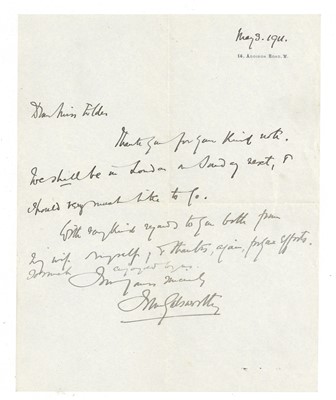 May 3. 1911.
14, Addison Road, W.
Dear Miss
Thank you for your kind note.
We shall be in London on Sunday next, &
I should very much like to go.
With very kind regards to you both from
my wife & myself, & thanks, again, for your efforts.
I am yours sincerely
John Galsworthy